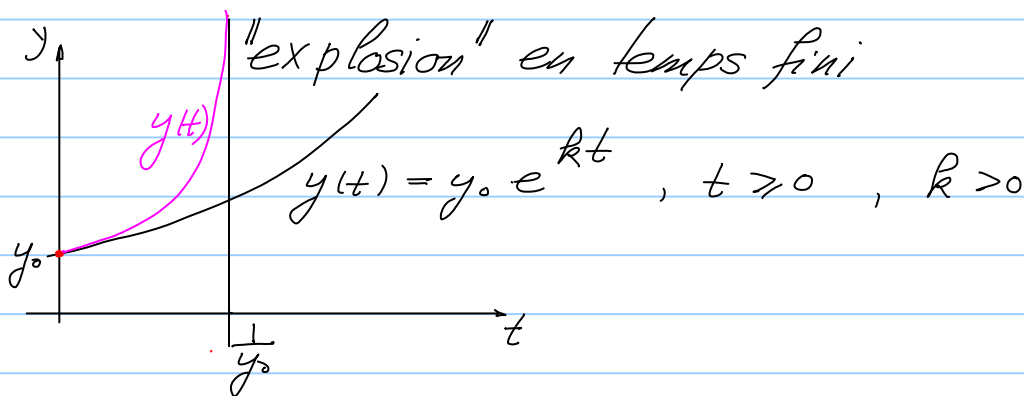 y "explosion" en temps fini
y(t)
y(t) = y₀ · e^{kt} , t ⩾ 0 , k > 0
y₀
t
1/y₀